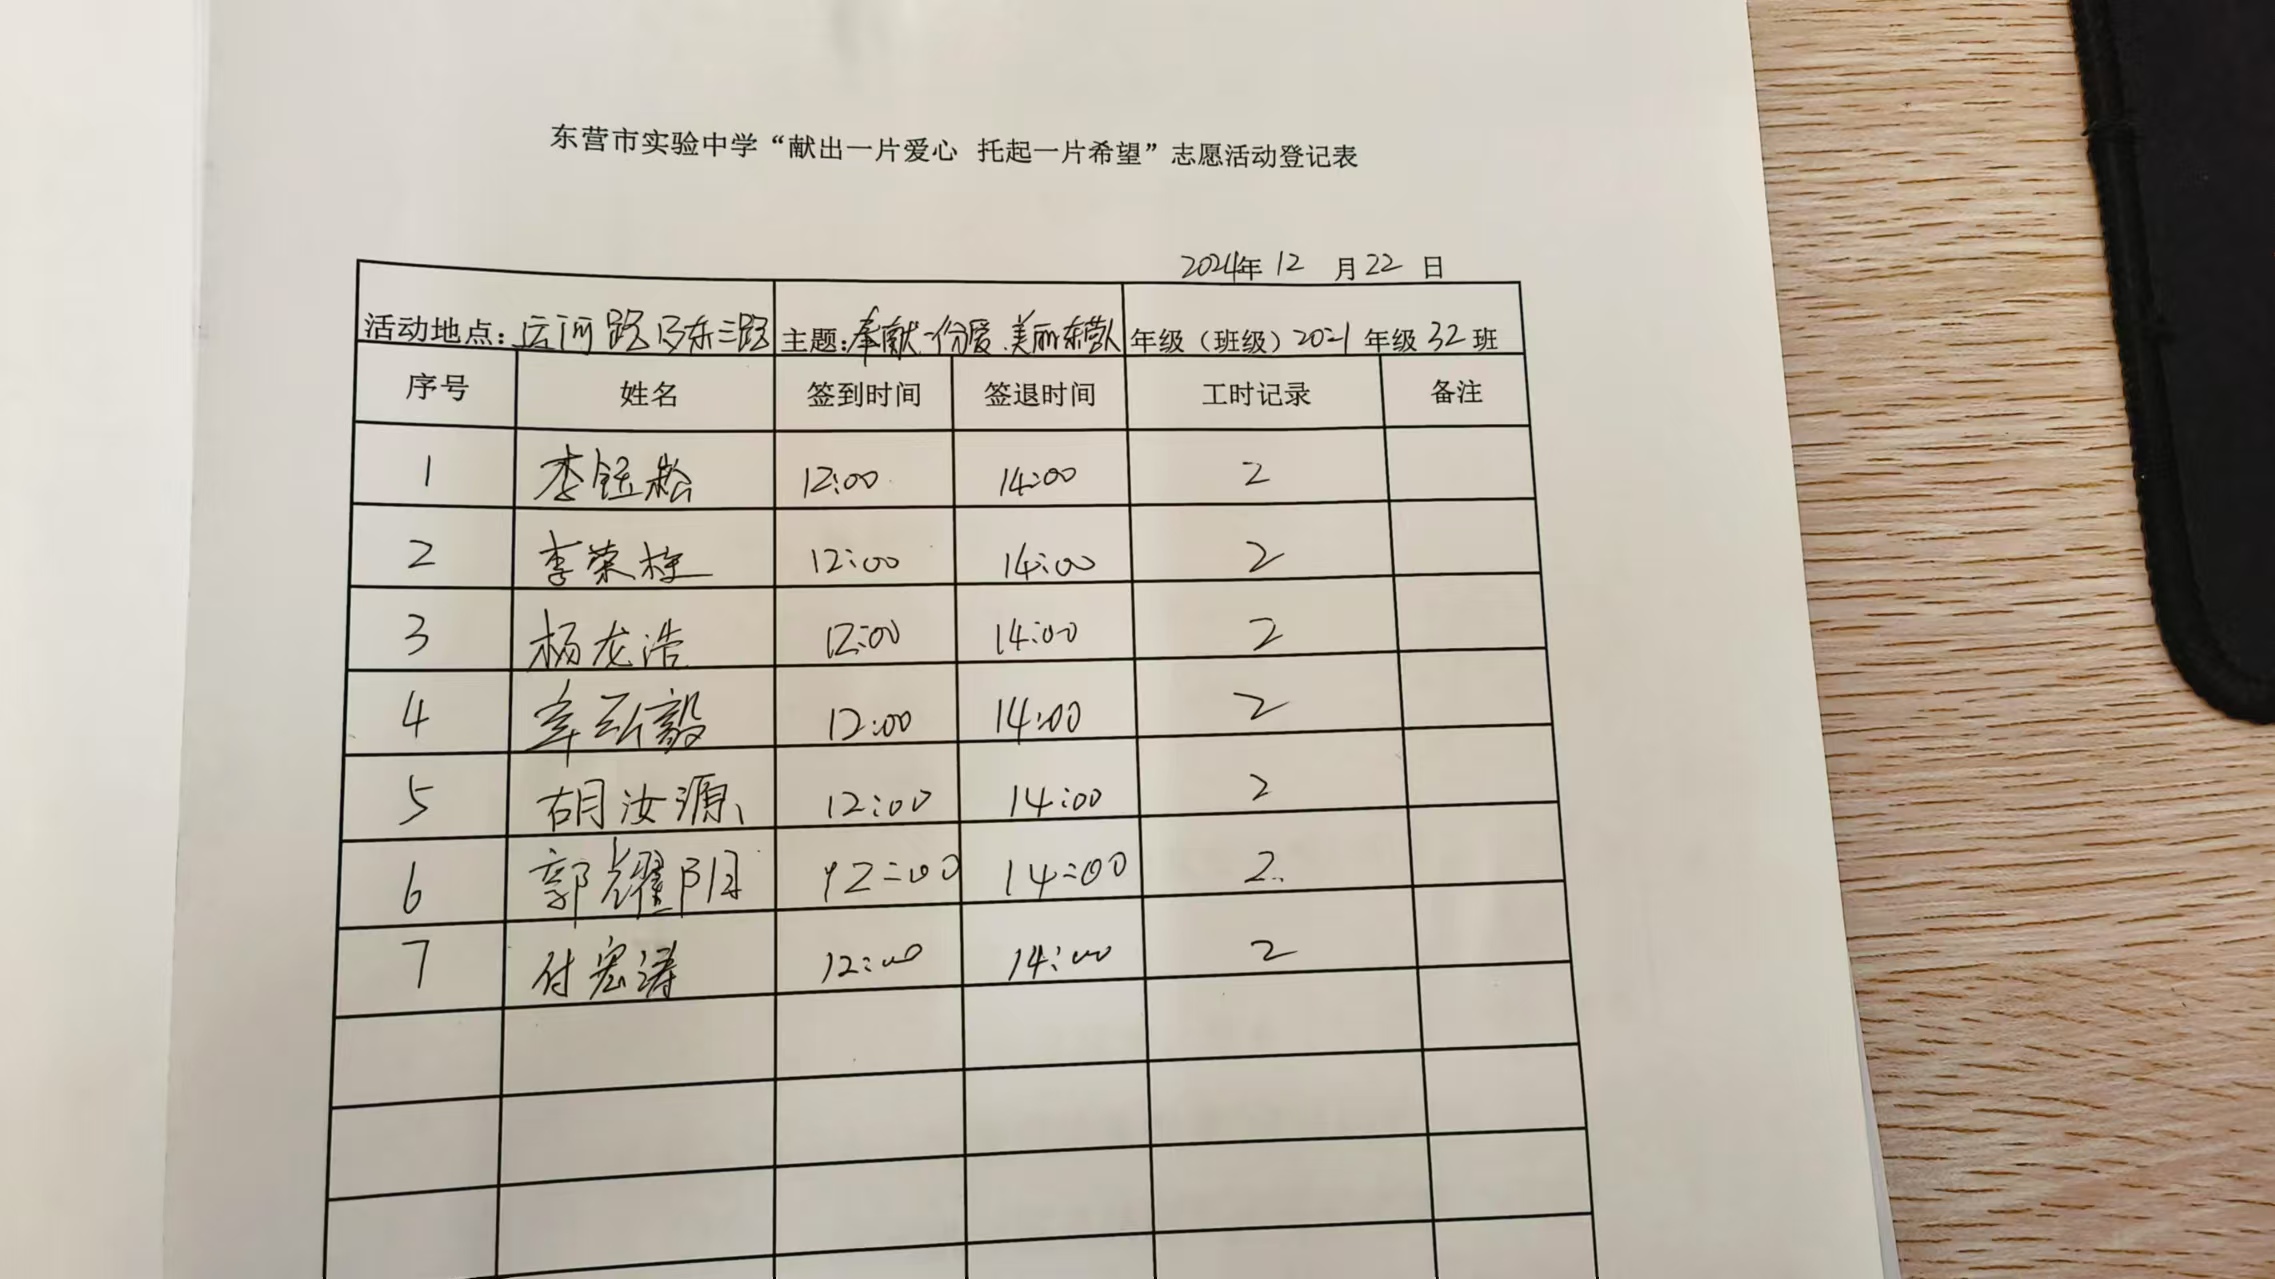 东营市实验中学“献出一片爱心 托起一片希望”志愿活动登记表
2024年 12 月 22 日
活动地点：运河路及东三路 主题：奉献一份爱 美丽东营人 年级（班级）2021 年级 32 班
序号 姓名 签到时间 签退时间 工时记录 备注
1 李钰松 12:00 14:00 2
2 李荣梓 12:00 14:00 2
3 杨龙浩 12:00 14:00 2
4 毅 12:00 14:00 2
5 胡汝源 12:00 14:00 2
6 郭耀阳 12:00 14:00 2
7 付宏涛 12:00 14:00 2